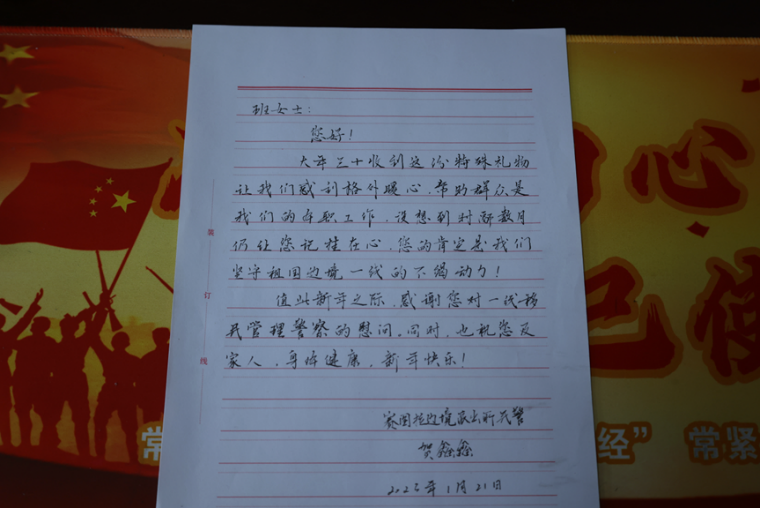 班女士：
您好！
大年三十收到这份特殊礼物
让我们感到格外暖心，帮助群众是
我们的本职工作，没想到时隔数月
仍让您记挂在心，您的肯定是我们
坚守祖国边境一代的不竭动力！
值此新年之际，感谢您对一线移
民管理警察的慰问。同时，也祝您及
家人，身体健康，新年快乐！
赛图拉边境派出所民警
贺鑫鑫
2023年1月21日
装
订
线
心
使
常
经” 常紧